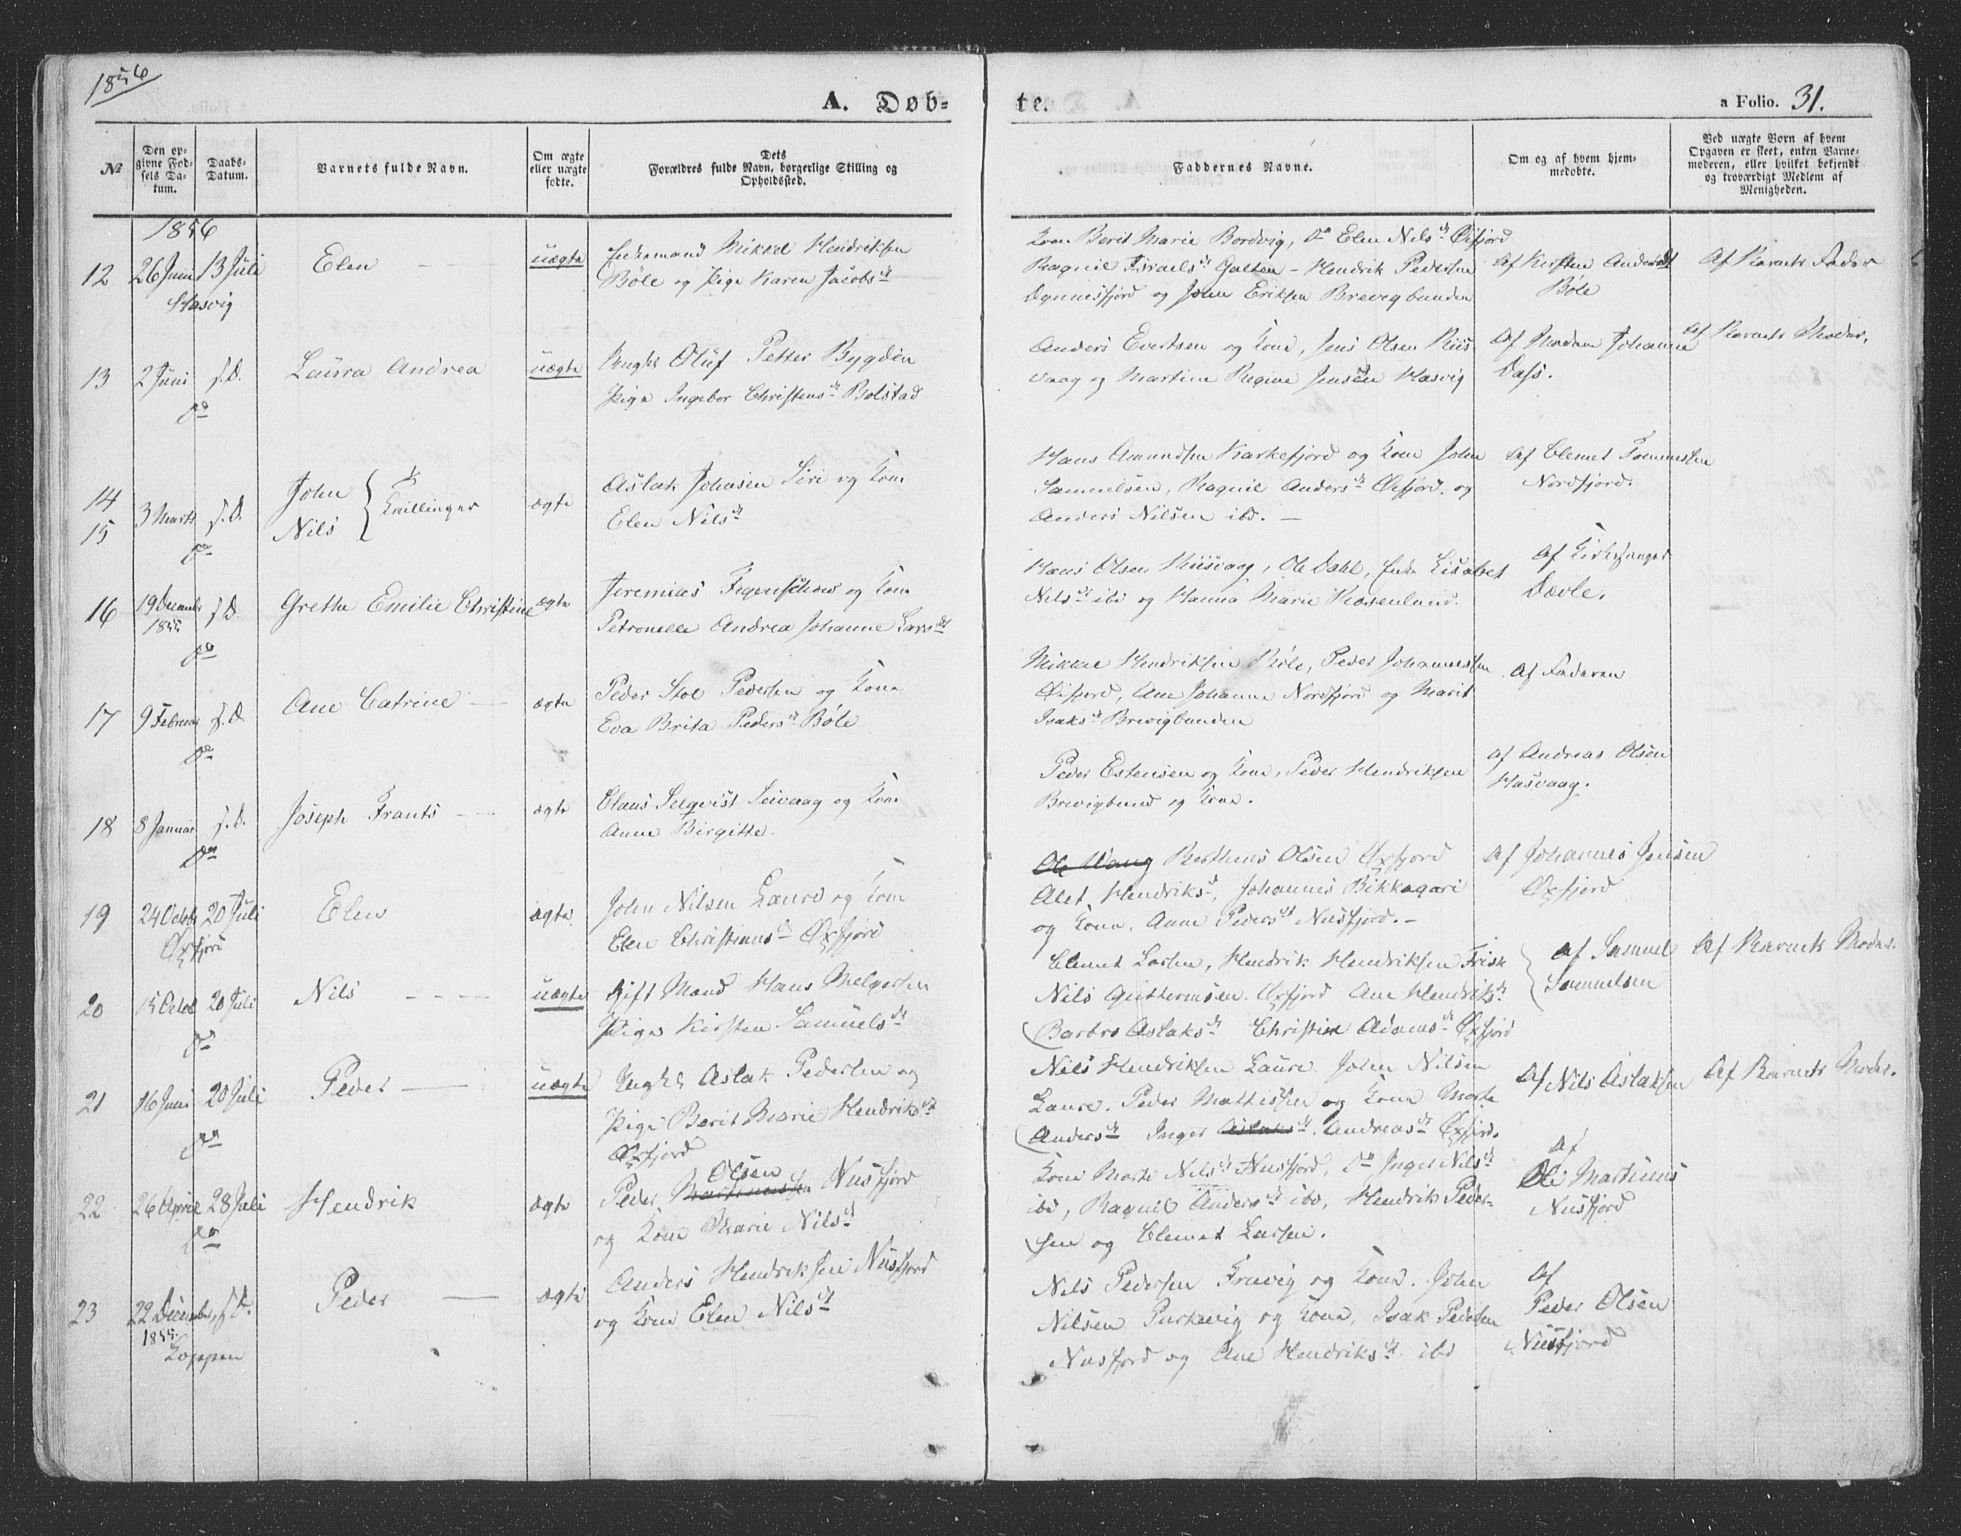 1856
A. Døb-
te.
a Folio. 31.
№
Den op-
givne Fød-
sels Da-
tum.
Daabs-
Datum.
Barnets fulde Navn.
Om ægte
eller uægte
fødte.
Dets
Forældres fulde Navn, borgerlige Stilling og
Opholdssted.
Faddernes Navne.
Om og af hvem hjem-
medøbte.
Ved uægte Børn af hvem
Opgaven er skeet, enten Barne-
moderen, eller hvilket bekjendt
og troværdigt Medlem af
Menigheden.
1856
12 26 Juni 13 Juli Elen uægte Enkemand Mikkel Hendriksen
Bøle og Pige Karen Jacobsdt
Hasvig
Kone Berit Marie Bordvig, Do Elen Nilsdt Øxfjord
Ragnil Israelsdt Galten - Hendrik Pedersen
Dønnesfjord og John Eriksen Brevigbunden
Af Kirsten Andersdt
Bøle
Af Barnets Fader
13 2 Juni s.D. Laura Andrea uægte Ungkl Oluf Petter Bygdøn
Pige Ingebor Christensdt Bolstad
Do
Anders Evertsen og Kone, Jens Olsen Riis
vaag og Martine Regine Jensen Hasvig
Af Madam Johanna
Dass.
Af Barnets Moder.
14
15
3 Marts s.D.
John
Nils
Tvillinger
ægte
Aslak Johnsen Siri og Kone
Elen Nilsdt
Do
Hans Amundsen Karkefjord og Kone John
Samuelsen, Ragnil Andersdt Øxfjord. og
Anders Nilsen ibd. —
Af Clemet Tommesen
Nordfjord.
16 19 December 1855 s.D. Grethe Emilie Christine ægte Jeremias Figenschow og Kone
Petronelle Andrea Johanne Larsdt
Do
Hans Olsen Riisvaag, Ole Dahl, Enke Lisabet
Nilsdt ibd og Hanna Marie Rosenlund.
Af Kirkesanger
Dævle.
17 9 Februar s.D. Ane Catrine ægte Peder Stol Pedersen og Kone
Eva Brita Pedersdt Bøle
Do
Mikkel Hendriksen Bøle, Peder Johannessen
Øxfjord, Ane Johanna Nordfjord og Marit
Isaksdt Brevigbunden
Af Faderen
18 8 Januar s.D. Joseph Frants ægte Claus Selqvist Seivaag og Kone
Anne Birgitte.
Do
Peder Estensen og Kone, Peder Hendriksen
Brevigbund og Kone.
af Andreas Olsen
Hasvaag.
19 24 Octob 20 Juli Elen ægte John Nilsen Laure og Kone
Elen Christiansdt Øxfjord
Øxfjord
Berthens Olsen Øxfjord
Alet Hendriksdt, Johannes Bikkagari
og Kone, Anne Pedersdt Nusfjord. —
Af Johannes Jensen
Øxfjord
20 15 Octob 20 Juli Nils uægte Gift Mand Hans Melgersen
Pige Kirsten Samuelsdt
Do
Clemet Larsen, Hendrik Hendriksen Frisk
Nils Guttermsen. Øxfjord Ane Hendriksdt
Barbro Aslaksdt Christine Adamsdt Øxfjord
af Samuel
Samuelsen
Af Barnets Moder.
21 16 Juni 20 Juli Peder uægte Ungkl Aslak Pedersen og
Pige Berit Marie Hendriksdt
Øxfjord
Do
Nils Hendriksen Laure John Nilsen
Laure. Peder Mathissen og Kone Marte
Andersdt Inger Aslaksdt. Andreasdt Øxfjord.
Af Nils Aslaksen
Af Barnets Moder.
22 26 April 28 Juli Hendrik ægte Peder Martinussen Olsen Nusfjord
og Kone Marie Nilsdt
Do
Kone Marte Nilsdt Nusfjord, Do Inger Nilsdt
ibd, Ragnil Andersdt ibd, Hendrik Peder-
sen og Clemet Larsen.
Af
Ole Martinus
Nusfjord
23 22 December 1855 s.D. Peder ægte Anders Hendriksen Nusfjord
og Kone Elen Nilsdt
Loppen
Nils Pedersen Fruvig og Kone. John
Nilsen Purkevig og Kone, Isak Pedersen
Nusfjord og Ane Hendriksdt ibd
Af
Peder Olsen
Nusfjord